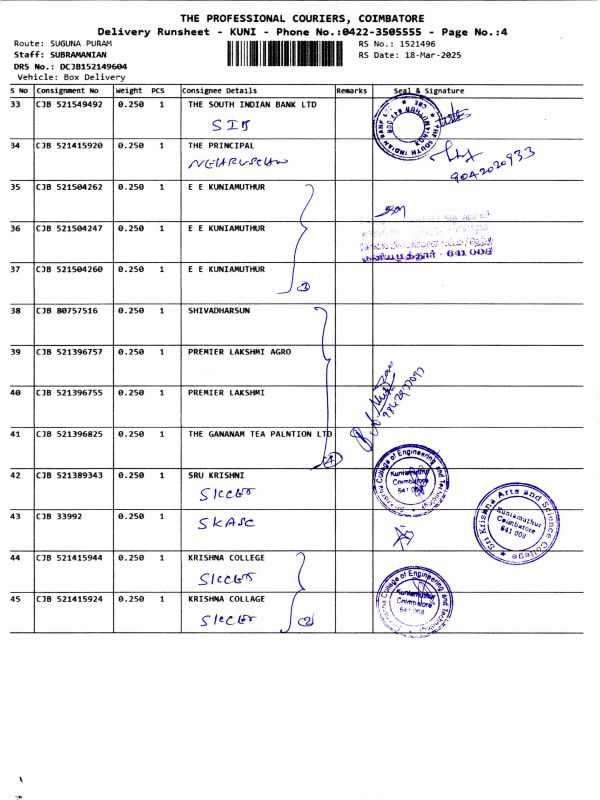 THE PROFESSIONAL COURIERS, COIMBATORE
Delivery Runsheet - KUNI - Phone No.:0422-3505555 - Page No.:4
Route: SUGUNA PURAM
RS No.: 1521496
Staff: SUBRAMANIAN
RS Date: 18-Mar-2025
DRS No.: DCJB152149604
Vehicle: Box Delivery
S No Consignment No Weight PCS Consignee Details Remarks Seal & Signature
33 CJB 521549492 0.250 1 THE SOUTH INDIAN BANK LTD
SIB
34 CJB 521415920 0.250 1 THE PRINCIPAL
9042020933
35 CJB 521504262 0.250 1 E E KUNIAMUTHUR
36 CJB 521504247 0.250 1 E E KUNIAMUTHUR
குனியமுத்தூர் - 641 008
37 CJB 521504260 0.250 1 E E KUNIAMUTHUR
3
38 CJB 80757516 0.250 1 SHIVADHARSUN
39 CJB 521396757 0.250 1 PREMIER LAKSHMI AGRO
40 CJB 521396755 0.250 1 PREMIER LAKSHMI
41 CJB 521396825 0.250 1 THE GANANAM TEA PALNTION LTD
4
42 CJB 521389343 0.250 1 SRU KRISHNI
Krishna College of Engineering and Technology
Kuniamuthur
Coimbatore
641 008
43 CJB 33992 0.250 1
SKASC
Sri Krishna Arts and Science College
Kuniamuthur
Coimbatore
641 008
44 CJB 521415944 0.250 1 KRISHNA COLLEGE
45 CJB 521415924 0.250 1 KRISHNA COLLAGE
2
Krishna College of Engineering and Technology
Kuniamuthur
Coimbatore
641 008